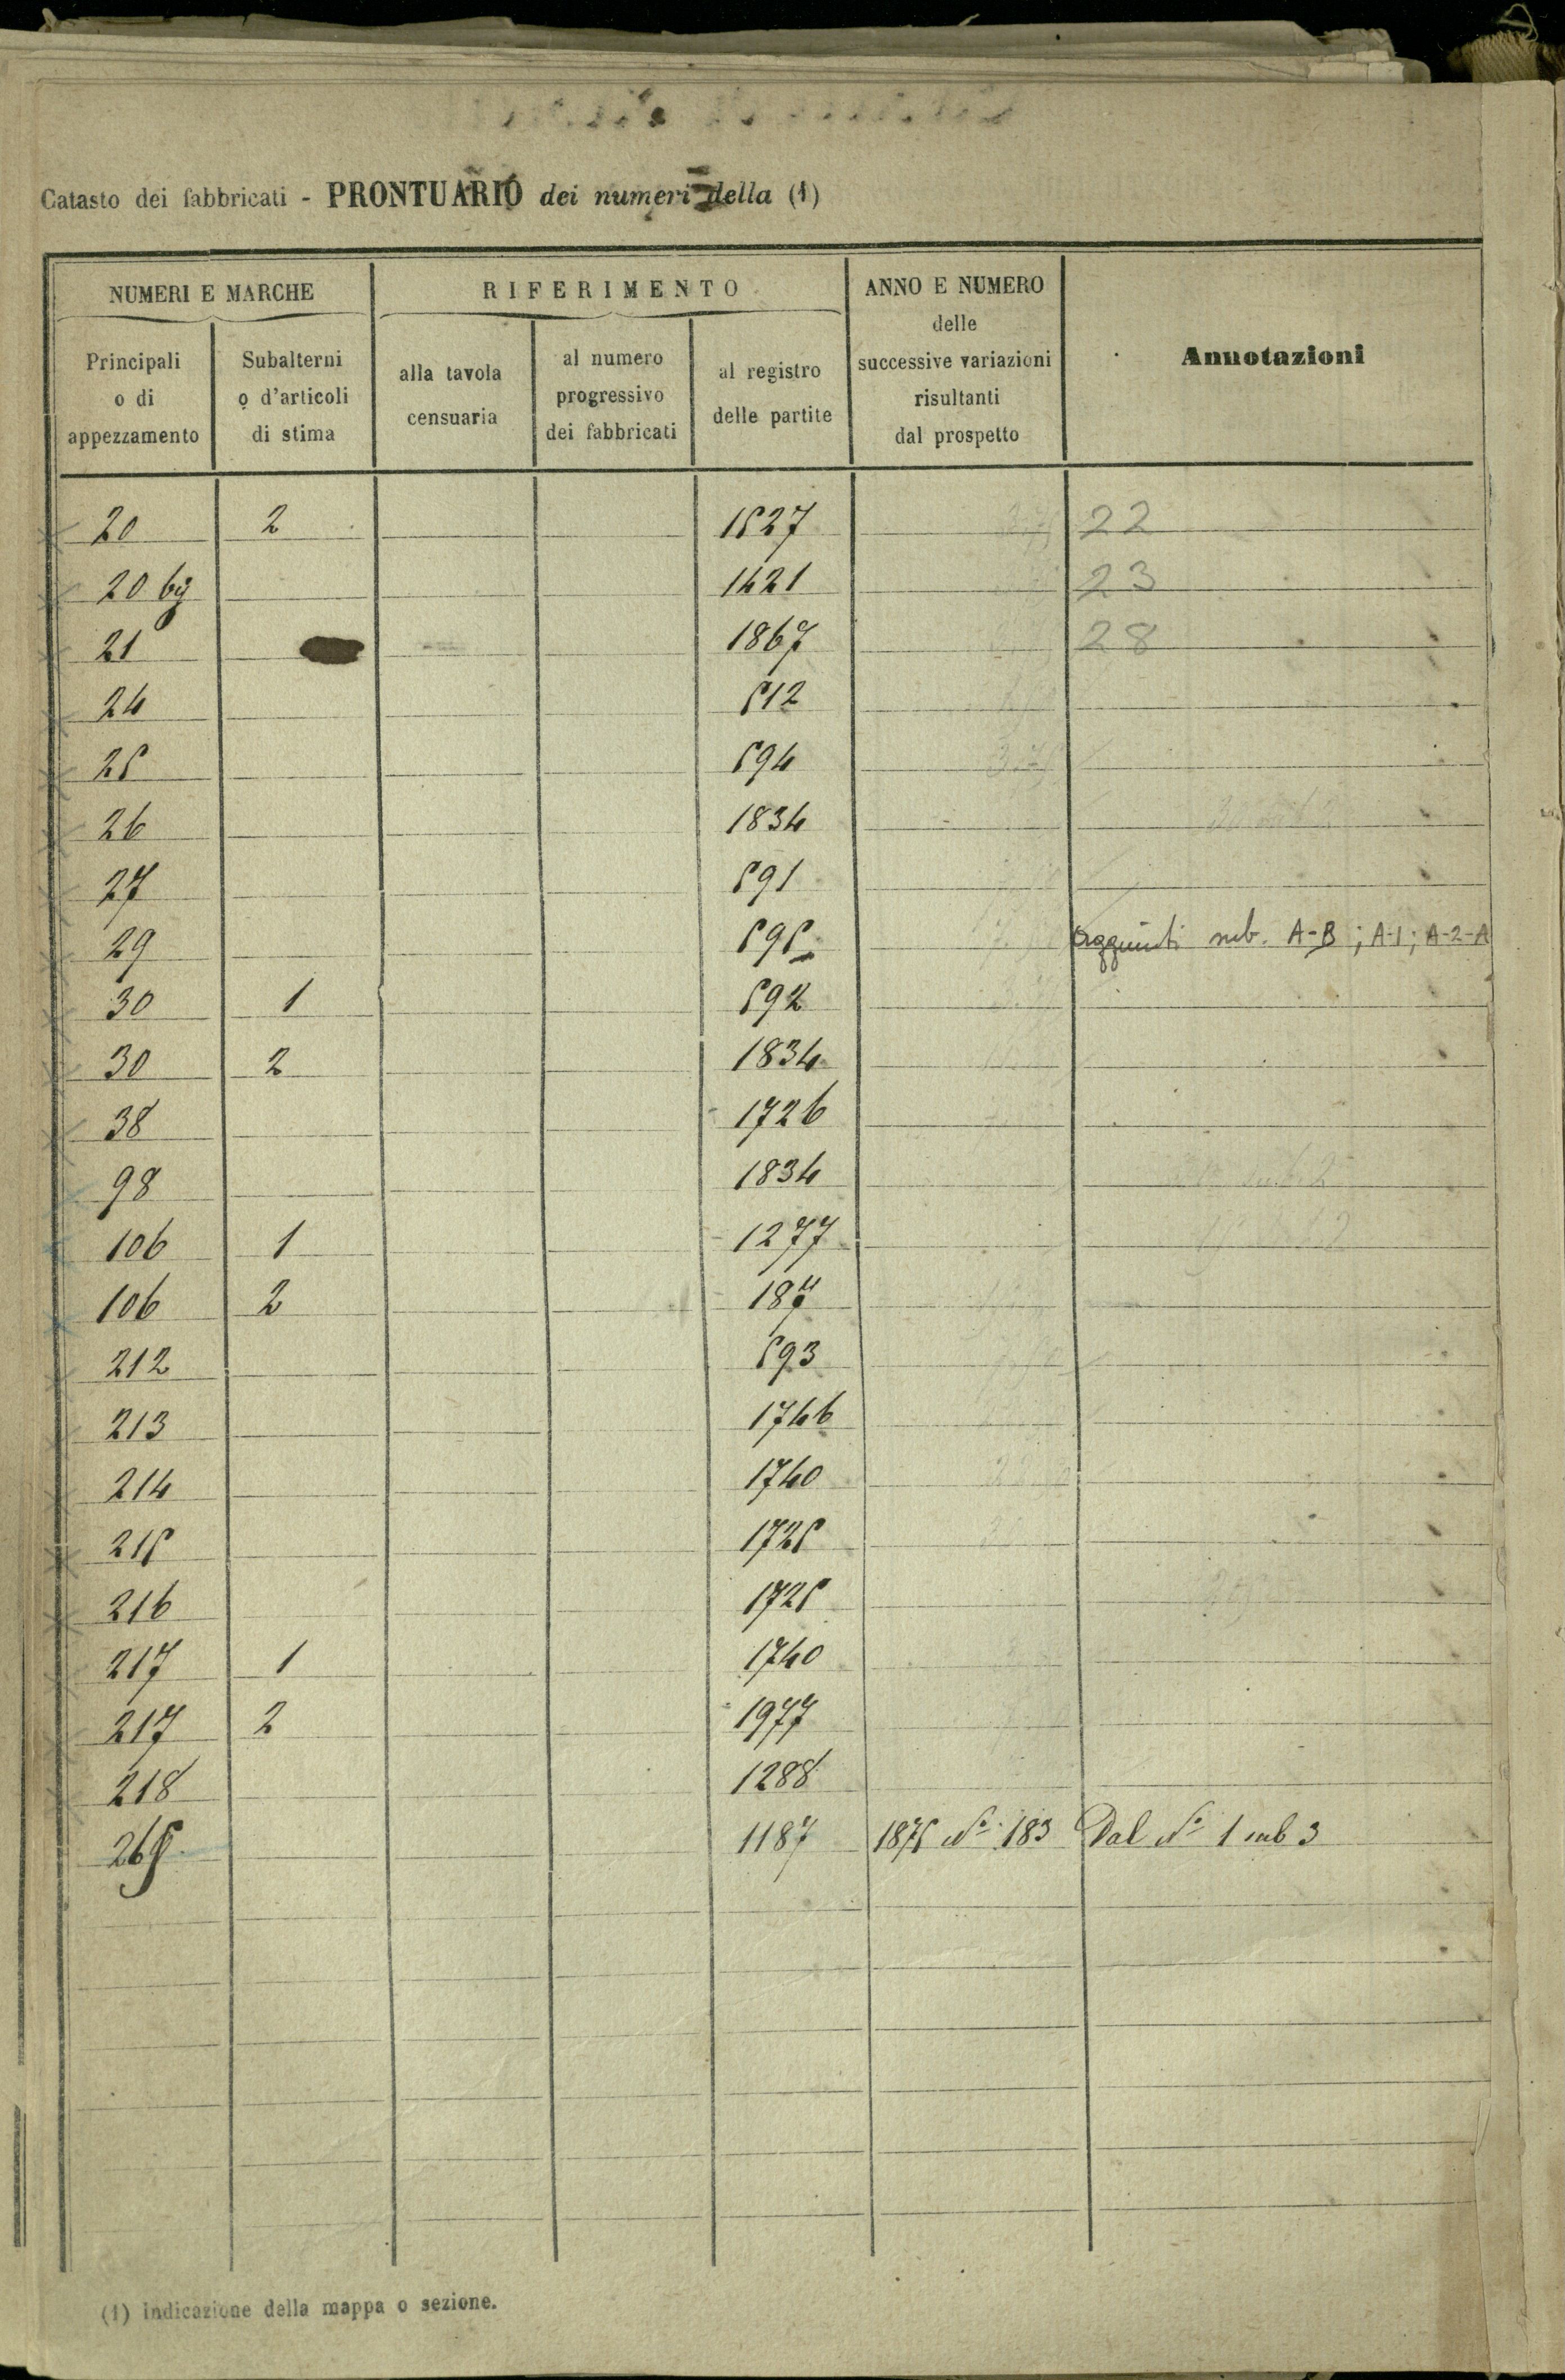 Catasto dei fabbricati - PRONTUARIO dei numeri della (1)
NUMERI E MARCHE
RIFERIMENTO
ANNO E NUMERO
delle
successive variazioni
risultanti
dal prospetto
Annotazioni
Principali
o di
appezzamento
Subalterni
o d'articoli
di stima
alla tavola
censuaria
al numero
progressivo
dei fabbricati
al registro
delle partite
20 2 1527 22
20 bis 1421 23
21 1867 28
24 512
25 594
26 1834
27 591
29 595 aggiunti sub. A-B ; A-1 ; A-2-A
30 1 592
30 2 1834
38 1726
98 1834
106 1 1277
106 2 187
212 593
213 1746
214 1740
215 1725
216 1725
217 1 1740
217 2 1977
218 1288
265 1187 1875 N° 183 Dal N° 1 sub 3
(1) Indicazione della mappa o sezione.